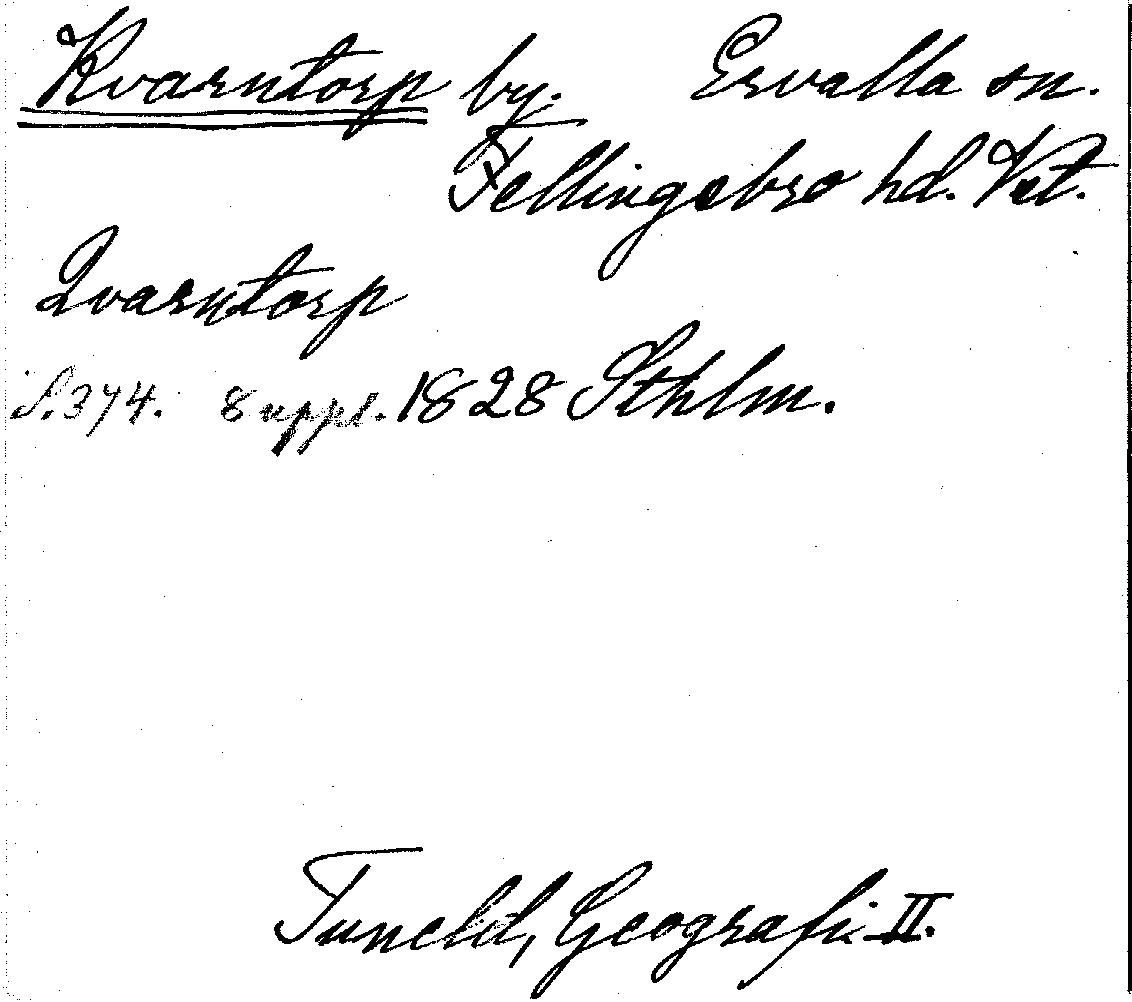 Kvarntorp by. Ervalla sn.
Fellingsbro hd. Vstm.
Qvarntorp
S. 374. 8 uppl. 1828 Sthlm.
Tuneld, Geografi II.